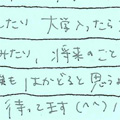 したり 大学入ったら
みたり，将来のこと
もはかどると思う
待ってます(^^)